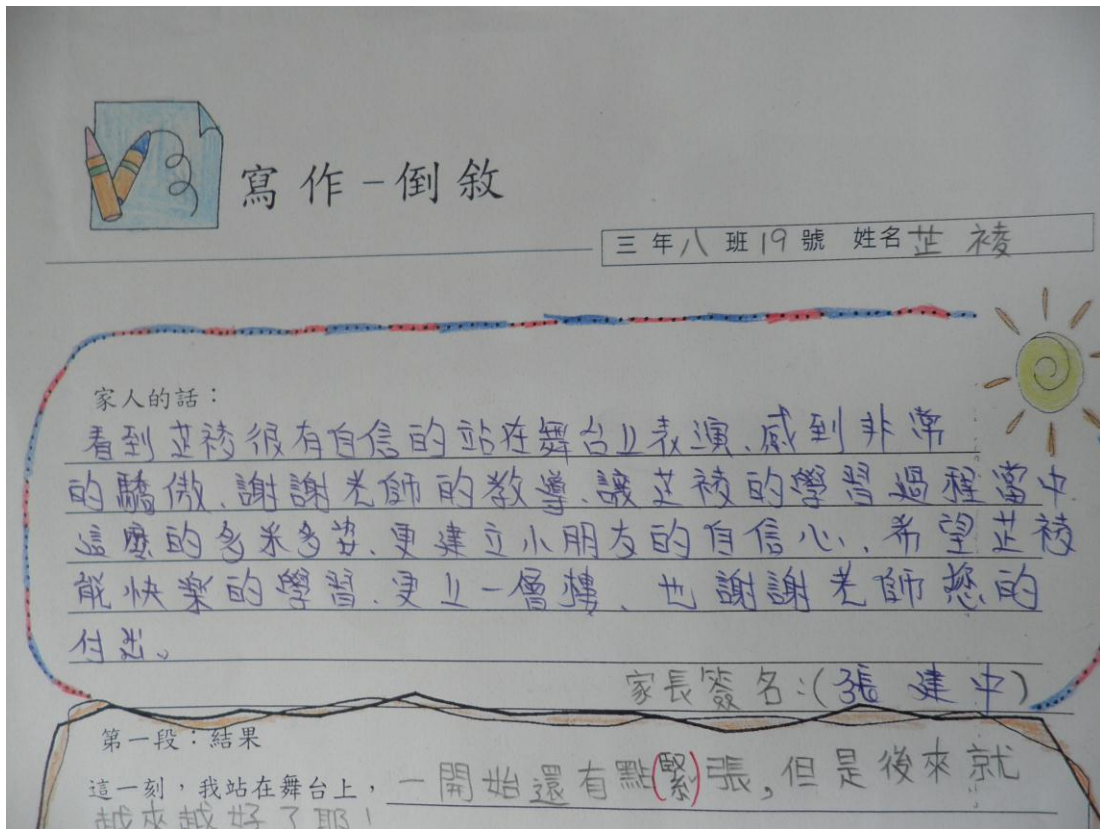 寫作-倒敘
三年八班19號 姓名芷祾
家人的話：
看到芷祾很有自信的站在舞台上表演、感到非常
的驕傲、謝謝老師的教導、讓芷祾的學習過程當中
這麼的多采多姿、更建立小朋友的自信心、希望芷祾
能快樂的學習、更上一層樓、也謝謝老師您的
付出。
家長簽名:(張建中)
第一段：結果
這一刻，我站在舞台上，一開始還有點(緊)張,但是後來就
越來越好了耶!